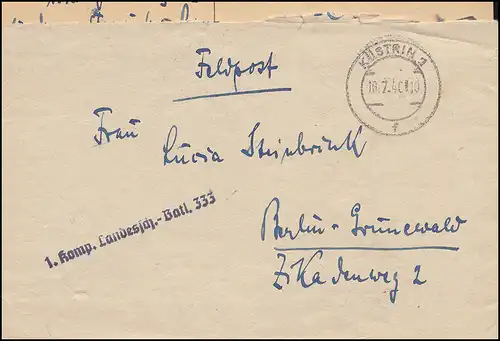 Feldpost
KÜSTRIN 1
Frau
Lucia Steinbrink
1. Komp. Landessch.-Batl. 333
Berlin-Grunewald
Zikadenweg 2